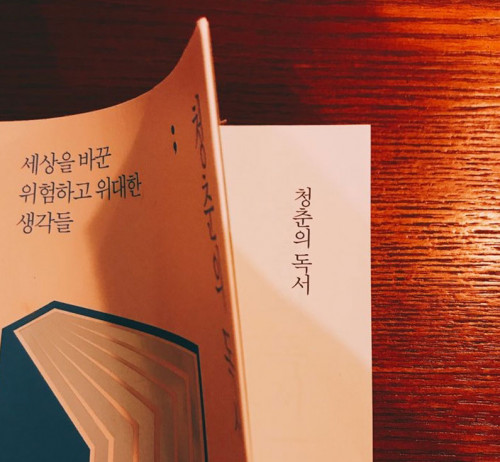 세상을 바꾼
위험하고 위대한
생각들
청춘의
청춘의 독서